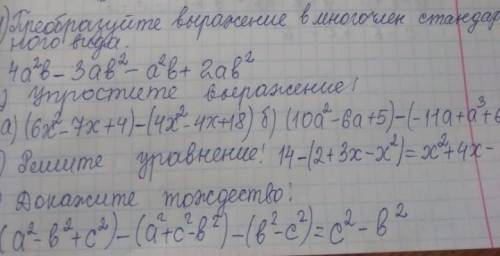 1) Преобразуйте выражение в многочлен стандар
ного вида.
4а²в - 3ав² - а²в + 2ав²
) Упростите выражение!
а) (6х² - 7х + 4) - (4х² - 4х + 18) б) (10а² - 6а + 5) - (-11а + а³ + 6
) Решите уравнение! 14 - (2 + 3х - х²) = х² + 4х -
) Докажите тождество!
(а² - в² + с²) - (а² + с² - в²) - (в² - с²) = с² - в²